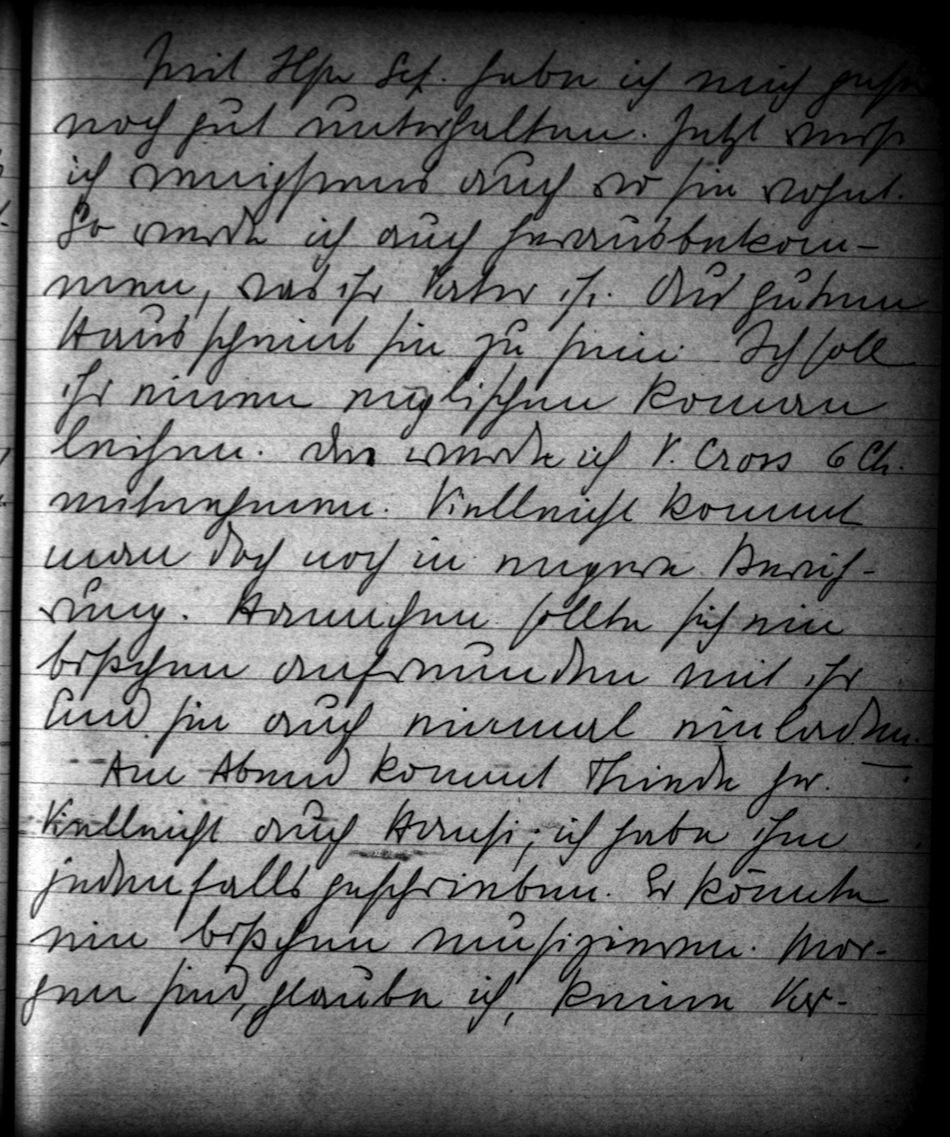 Mit Ilse Sch. habe ich mich
noch gut unterhalten. Jetzt weiß
ich wenigstens auch wo sie wohnt.
So werde ich auch herausbekom-
men, was ihr Vater ist. Aus gutem
Haus scheint sie zu sein. Ich soll
ihr einen englischen Roman
leihen. Da werde ich V. Cross 6 Ch.
mitnehmen. Vielleicht kommt
man doch noch in engere Berüh-
rung. Hannchen sollte sich ein
bißchen anfreunden mit ihr
und sie auch einmal einladen.
Am Abend kommt her.
Vielleicht auch Hansi; ich habe ihm
jedenfalls geschrieben. Er könnte
ein bißchen musizieren. Mor-
gen sind, glaube ich, keine Vor-